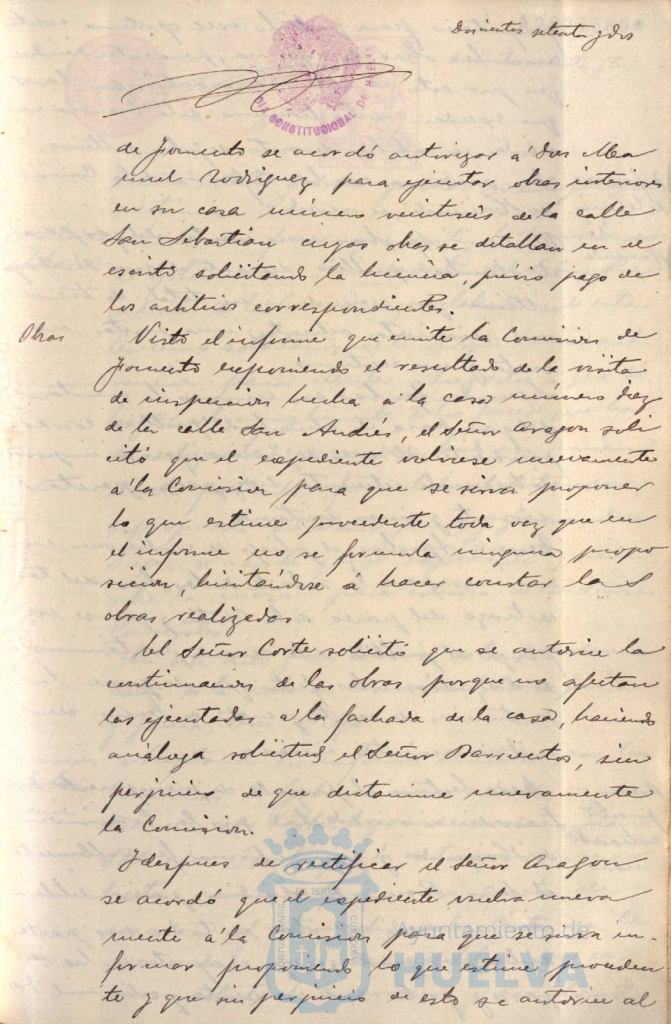 Doscientos setenta y dos
DIA CONSTITUCIONAL DE HUELVA
de Fomento se acordó autorizar á Don Ma
nuel Rodriguez para ejecutar obras interiores
en su casa número veintiseis de la calle
San Sebastian cuyas obras se detallan en el
escrito solicitando la licencia, previo pago de
los arbitrios correspondientes.
Obras
Visto el informe que emite la Comision de
Fomento exponiendo el resultado de la visita
de inspeccion hecha á la casa número diez
de la calle San Andrés, el Señor Aragon soli
citó que el expediente volviese nuevamente
á la Comision para que se sirva proponer
lo que estime procedente toda vez que en
el informe no se formula ninguna propo
sicion, limitandose á hacer constar las
obras realizadas.
El Señor Corte solicitó que se autorice la
continuacion de las obras porque no afectan
las ejecutadas á la fachada de la casa, haciendo
análoga solicitud el Señor Barrientos, sin
perjuicio de que dictamine nuevamente
la Comision.
Y despues de rectificar el Señor Aragon
se acordó que el expediente vuelva nueva
mente á la Comision para que se sirva in-
formar proponiendo lo que estime proceden
te y que sin perjuicio de esto se autorice al
Ayuntamiento de
HUELVA